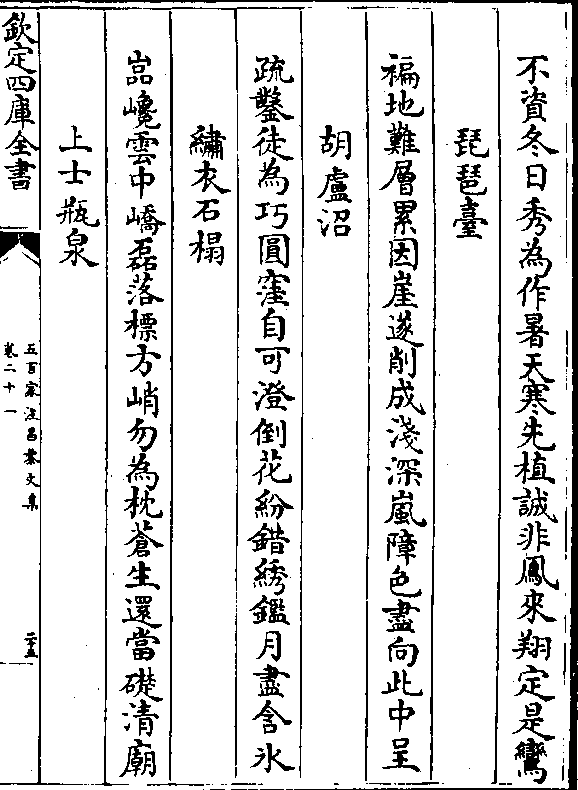 不資冬日秀為作暑天寒先植誠非鳳來翔定是鸞
琵琶臺
褊地難層累因崖遂削成淺深嵐障色盡向此中呈
胡盧沼
疏鑿徒為巧圓窪自可澄倒花紛錯綉鑑月盡含氷
繡衣石榻
嵓巉雲中嶠磊落標方峭勿為枕蒼生還當礎清廟
上士瓶泉
欽定四庫全書
五百家注昌黎文集
卷二十一
二十五